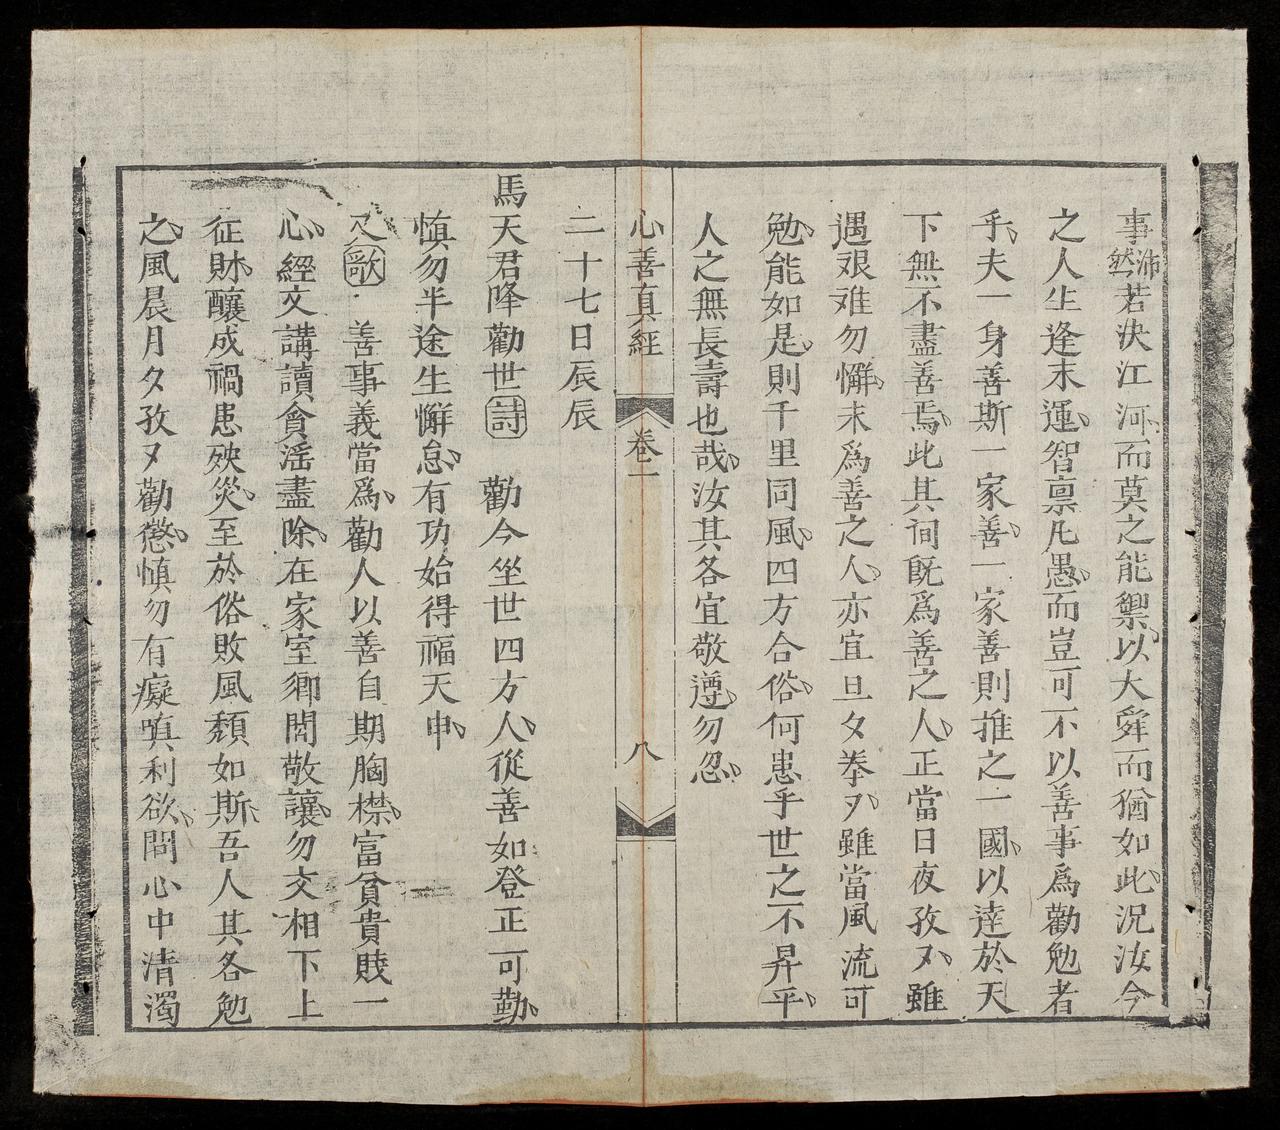 事沛然若決江河而莫之能禦以大舜而猶如此況汝今
之人生逢末運智禀凡愚而豈可不以善事爲勸勉者
乎夫一身善斯一家善一家善則推之一國以達於天
下無不盡善焉此其間既爲善之人正當日夜孜〻雖
遇艰难勿懈未爲善之人亦宜旦夕拳〻雖當風流可
勉能如是則千里同風四方合俗何患乎世之不昇平
人之無長壽也哉汝其各宜敬遵勿忽
心善真經 卷一 八
二十七日辰辰
馬天君降勸世詩 勸今坐世四方人從善如登正可勤
慎勿半途生懈怠有功始得福天申
又歌 善事義當爲勸人以善自期胸襟富貧貴賤一
心經文講讀貪淫盡除在家室鄉閭敬讓勿交相下上
征財釀成禍患殃災至於俗敗風頹如斯吾人其各勉
之風晨月夕孜〻勸懲慎勿有癡嗔利欲問心中清濁